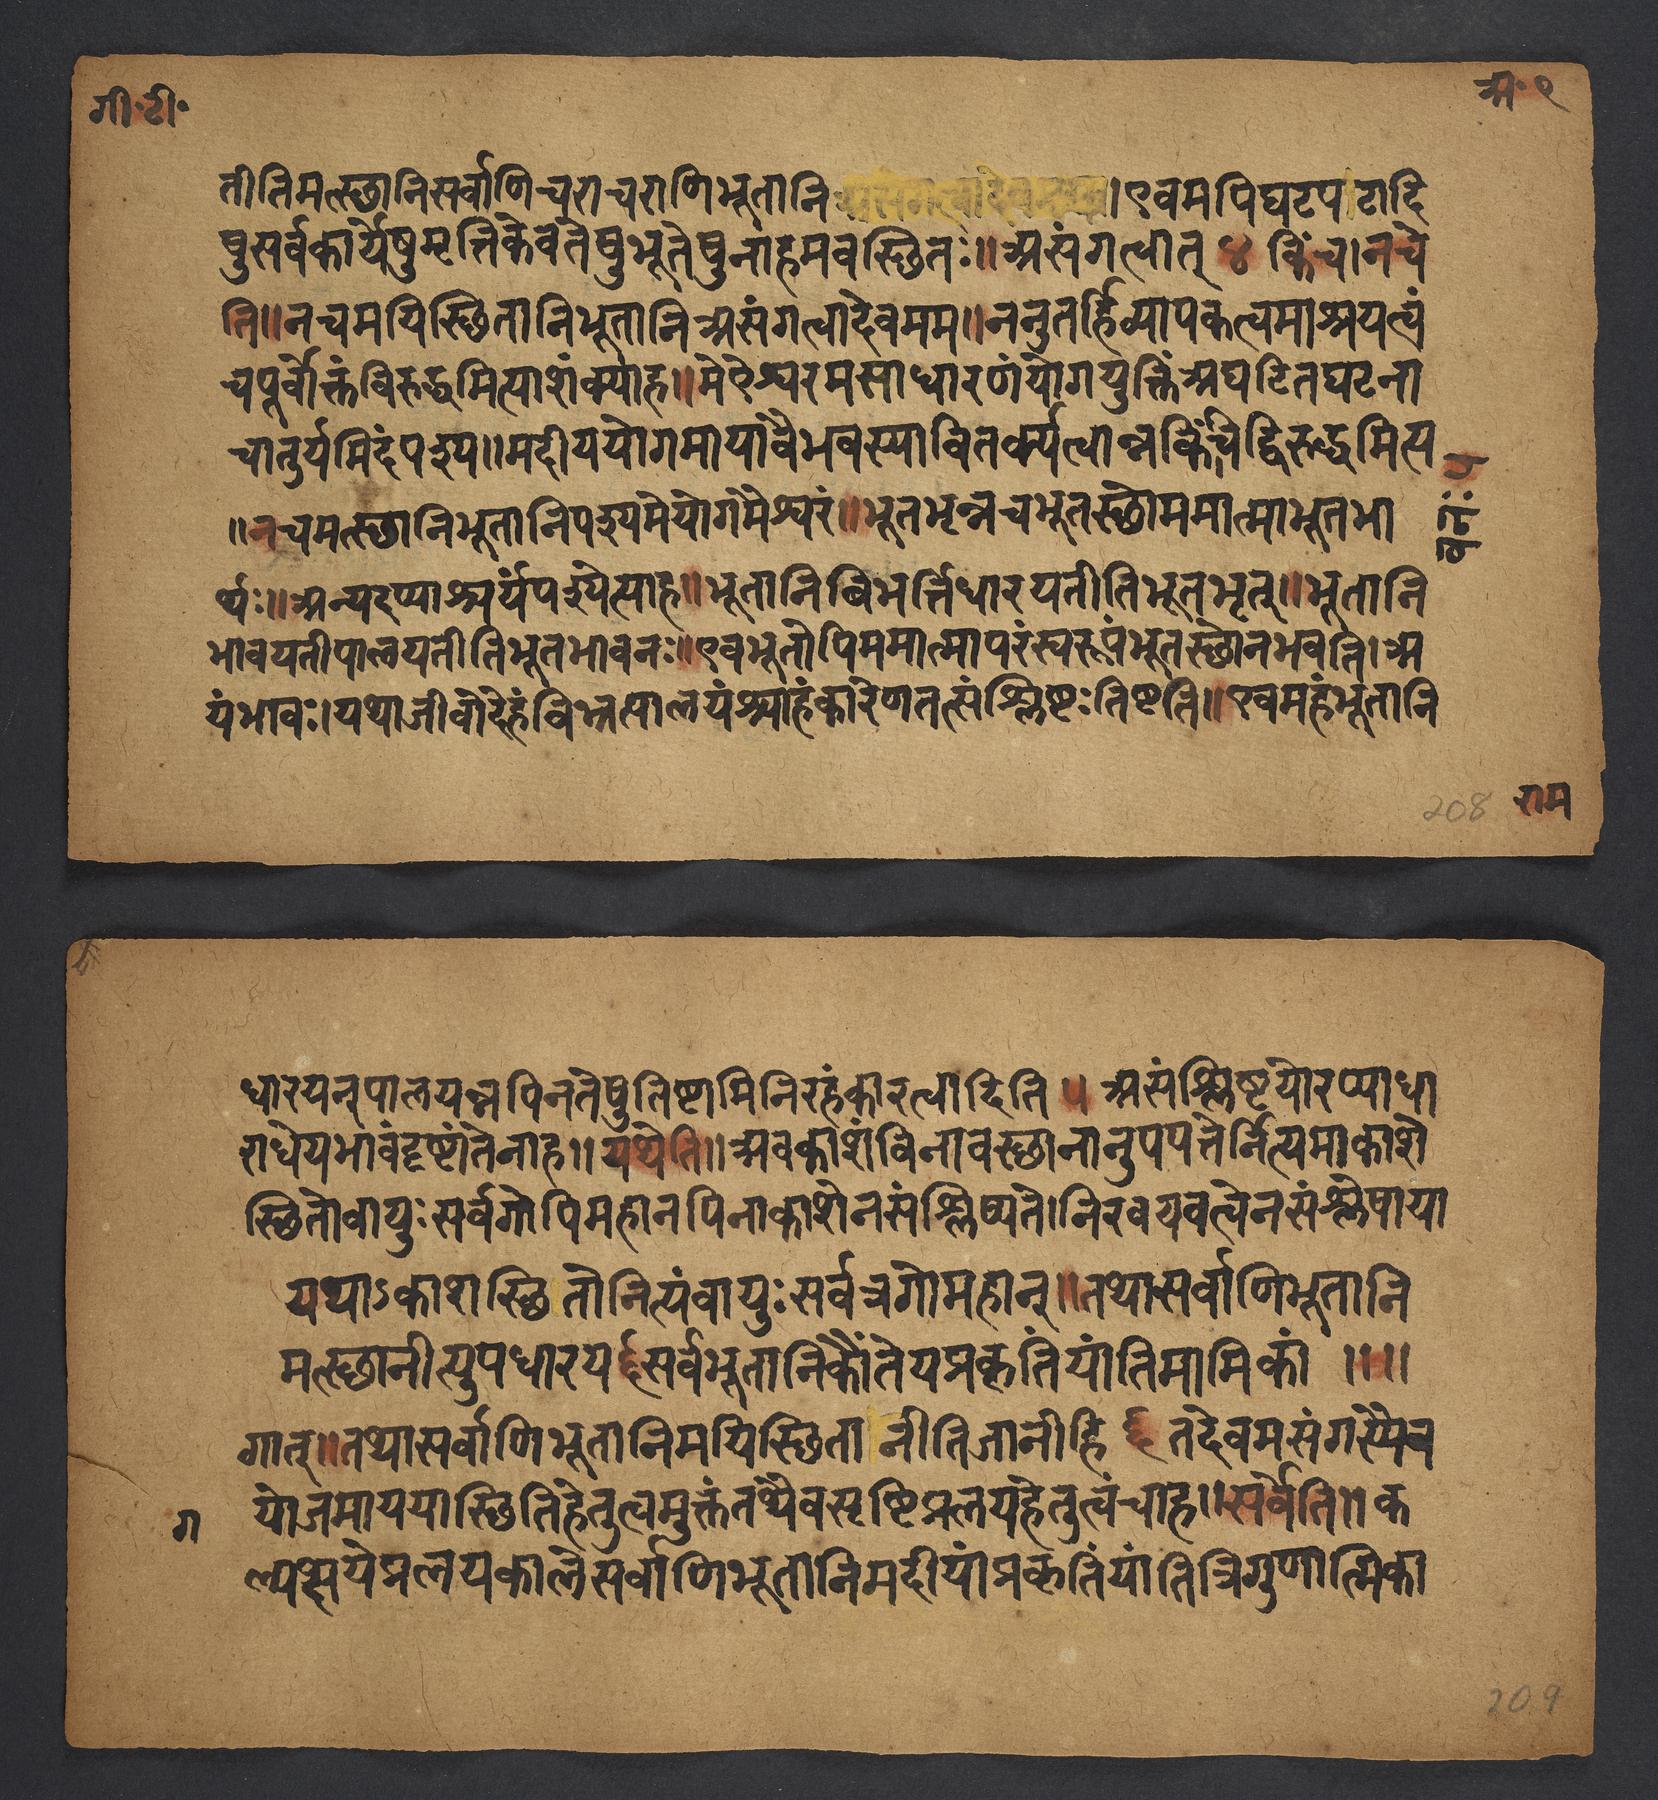 गी॰टी॰
अ॰९
तीतिमत्स्छानिसर्वाणिचराचराणिभूतानि।एवमपिघटपटादि
षुसर्वकार्येषुमृत्तिकेवतेषुभूतेषुनाहमवस्छितः॥असंगत्वात् ४ किंच।नचे
ति॥नचमयिस्छितानिभूतानिअसंगत्वादेवमम॥ननुतर्हिव्यापकत्वमाश्रयत्वं
चपूर्वोक्तंविरुद्धमित्याशंक्याह॥मेऐश्वरमसाधारणंयोगयुक्तिंअघटितघटना
चातुर्यमिदंपश्य॥मदीययोगमायावैभवस्यावितर्क्यत्वान्नकिंचिद्विरुद्धमित्य
॥नचमत्स्छानिभूतानिपश्यमेयोगमैश्वरं॥भूतभृन्नचभूतस्छोममात्माभूतभा
र्थः॥अन्यदप्याश्चर्यंपश्येत्याह॥भूतानिबिभर्त्तिधारयतीतिभूतभृत्॥भूतानि
भावयतीपालयतीतिभूतभावनः॥एवंभूतोपिममात्मापरंस्वरूपंभूतस्छोनभवति।अ
यंभावः।यथाजीवोदेहंबिभ्रत्पालयंश्चाहंकारेणतत्संश्लिष्टःतिष्टति॥एवमहंभूतानि
राम
208
धारयन्पालयन्नपिनतेषुतिष्टामिनिरहंकारत्वादिति ५ असंश्लिष्टयोरप्याधा
राधेयभावंदृष्टांतेनाह॥यथेति॥अवकाशंविनावस्छानानुपपत्तेर्नित्यमाकाशे
स्छितोवायुःसर्वगोपिमहानपिनाकाशेनसंश्लिष्यते।निरवयवत्वेनसंश्लेषाया
यथाऽकाशस्छितोनित्यंवायुःसर्वत्रगोमहान्॥तथासर्वाणिभूतानि
मत्स्छानीत्युपधारय६सर्वभूतानिकौंतेयप्रकृतिंयांतिमामिकां ॥॥
गात्॥तथासर्वाणिभूतानिमयिस्छितानीतिजानीहि ६ तदेवमसंगस्यैव
ग
योजमाययास्छितिहेतुत्वमुक्तंतथैवसृष्टिप्रलयहेतुत्वंचाह॥सर्वेति॥क
ल्पक्षयेप्रलयकालेसर्वाणिभूतानिमदीयांप्रकृतिंयांतित्रिगुणात्मिका
209